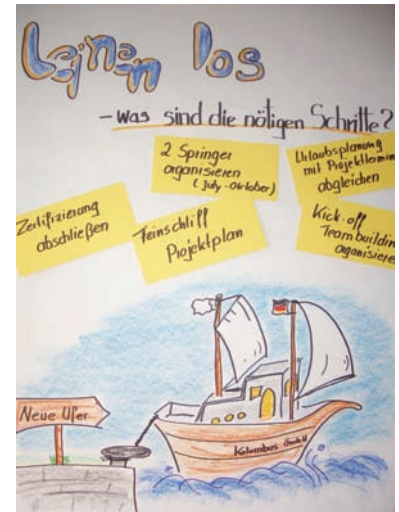 Leinen los
- Was sind die nötigen Schritte?
2 Springer
organisieren
(July - Oktober)
Urlaubsplanung
mit Projektterminen
abgleichen
Zertifizierung
abschließen
Feinschliff
Projektplan
Kick-off
Teambuilding
organisieren
Neue Ufer
Kolumbus GmbH